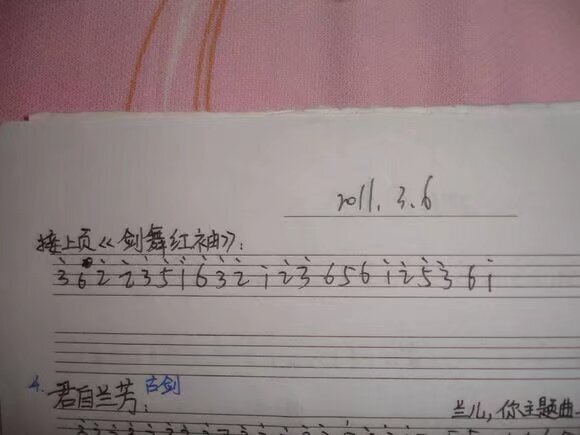 2011.3.6
接上页《剑舞红袖》:
3 6 2 2 3 5 1 6 3 2 1 2 3 6 5 6 1 2 5 3 6 1
4. 君自兰芳: 古剑
兰儿,你主题曲